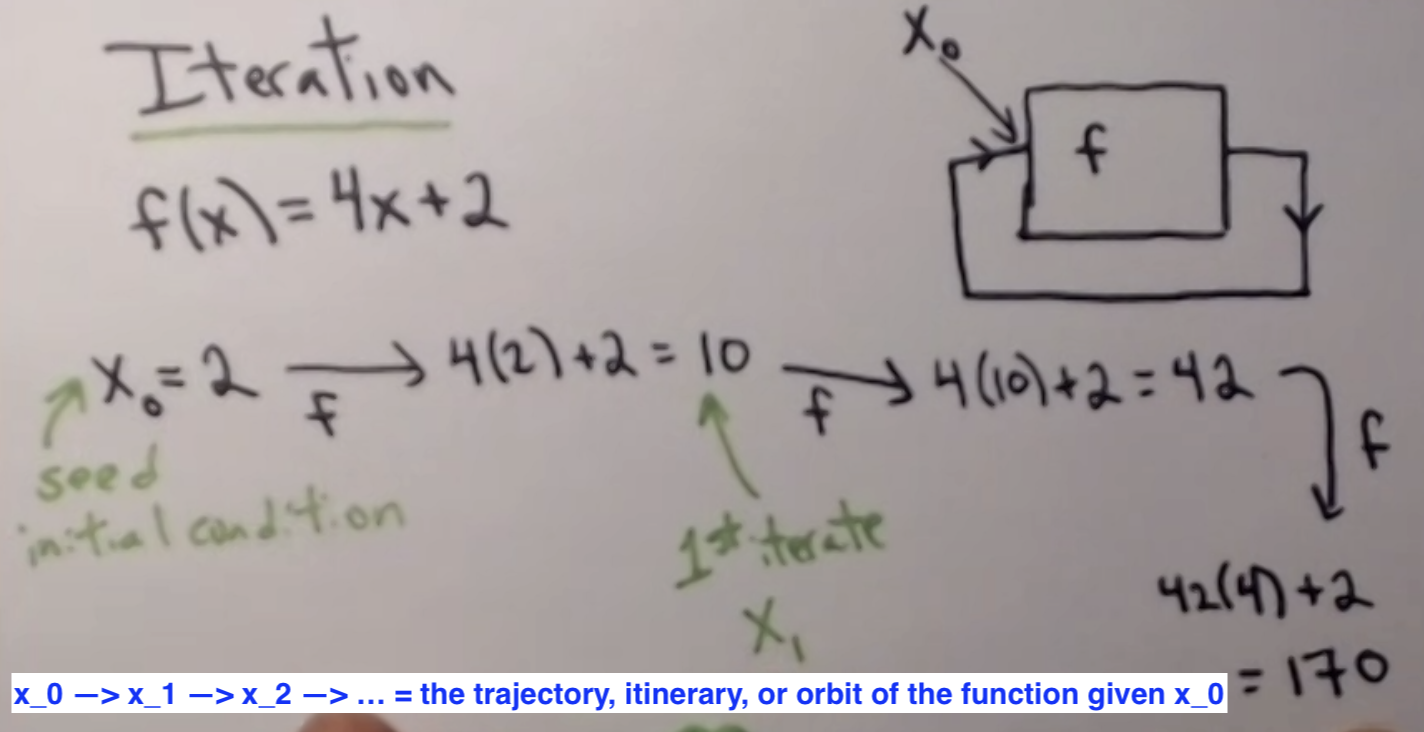 Iteration
X₀
f
f(x) = 4x+2
X₀ = 2 → 4(2)+2 = 10 → 4(10)+2 = 42
f
f
f
seed
initial condition
1st iterate
X₁
42(4)+2
= 170
x_0 —> x_1 —> x_2 —> ... = the trajectory, itinerary, or orbit of the function given x_0